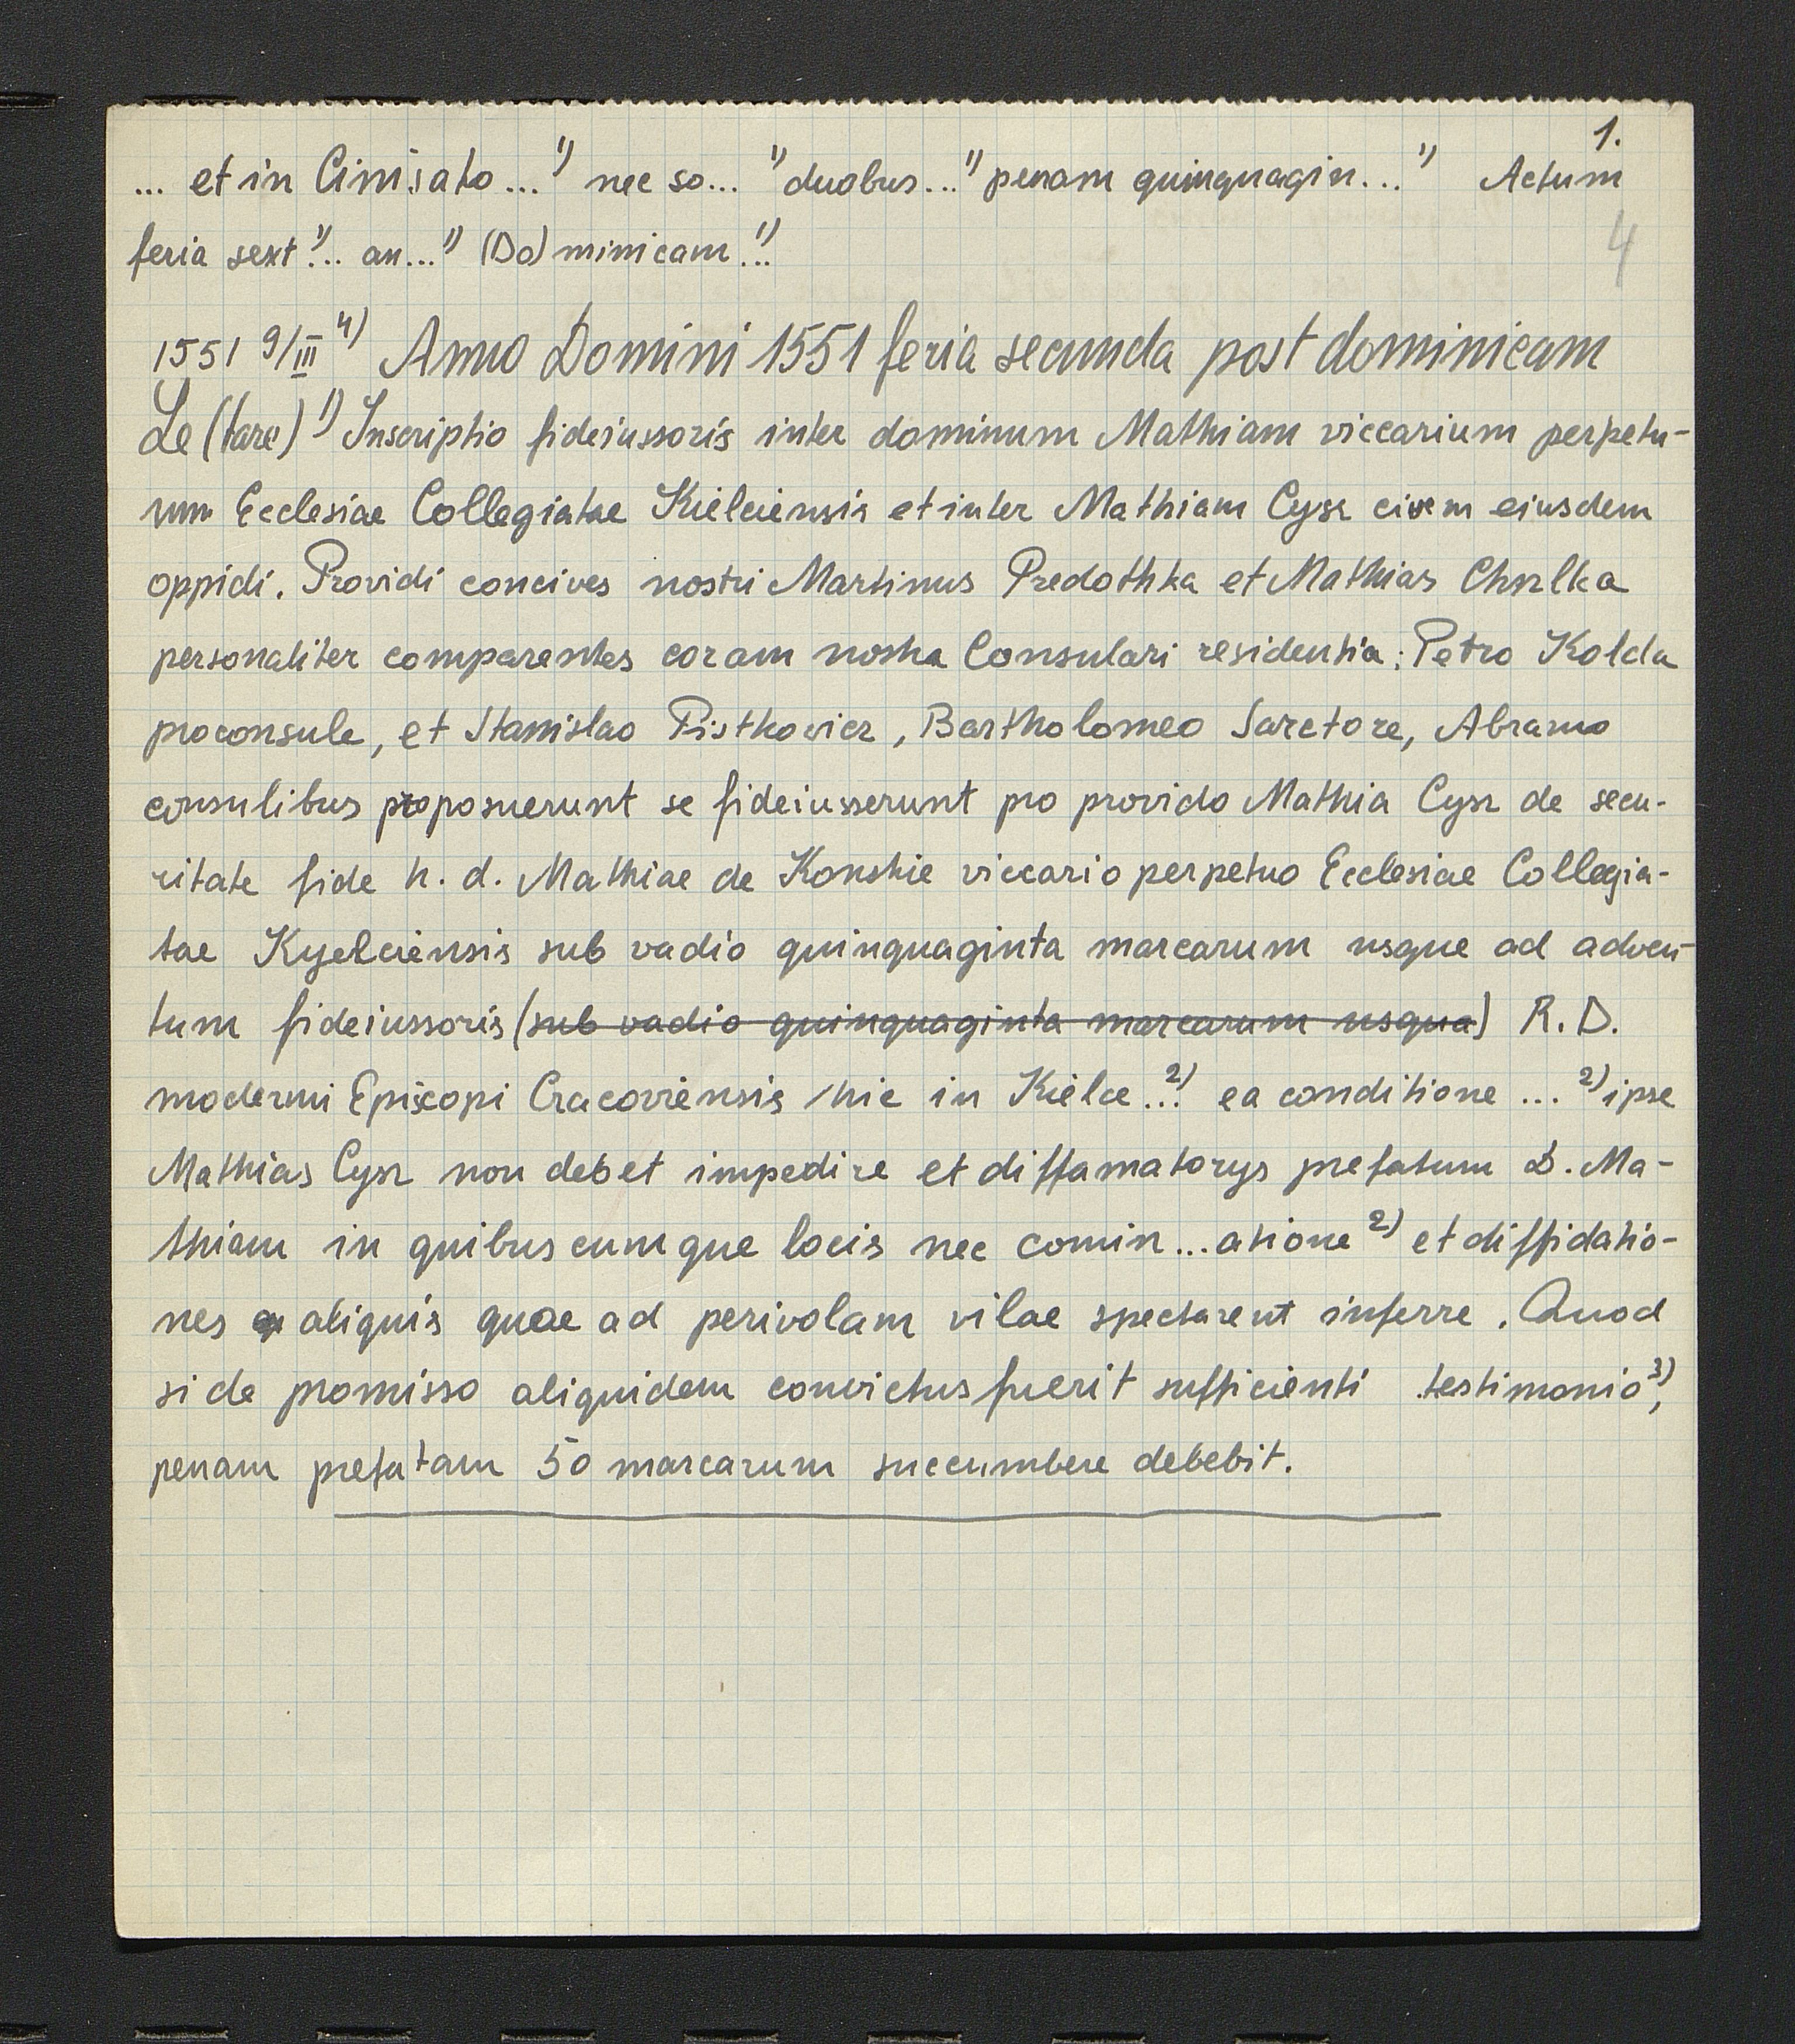 1.
... et in Cinisato ...¹⁾ nec so... ¹⁾ duobus ...¹⁾ penam quinquagin...¹⁾ Actum
feria sext¹⁾... an...¹⁾ (Do)minicam...¹⁾
4
1551 9/III ⁴⁾ Anno Domini 1551 feria secunda post dominicam
Le(tare)¹⁾ Inscriptio fideiussoris inter dominum Mathiam viccarium perpetu-
um Ecclesiae Collegiatae Kielciensis et inter Mathiam Cysz civem eiusdem
oppidi. Providi concives nostri Martinus Predothka et Mathias Chszlka
personaliter comparentes coram nostra Consulari residentia: Petro Kolda
proconsule, et Stanislao Pistkovicz, Bartholomeo Sarctore, Abramo
consulibus proposuerunt se fideiusserunt pro provido Mathia Cysz de secu-
ritate fide h. d. Mathiae de Konskie viccario perpetuo Ecclesiae Collegia-
tae Kyelciensis sub vadio quinquaginta marcarum usque ad adven-
tum fideiussoris (sub vadio quinquaginta marcarum usqua) R. D.
moderni Episcopi Cracoviensis hic in Kielce...²⁾ ea conditione ...²⁾ ipse
Mathias Cysz non debet impedire et diffamatorys prefatum D. Ma-
thiam in quibuscumque locis nec comin...atione²⁾ et diffidatio-
nes aliquis quae ad perivolam vilae spectarent inferre. Quod
si de promisso aliquidem convictus fuerit sufficienti testimonio³⁾,
penam prefatam 50 marcarum succumbere debebit.